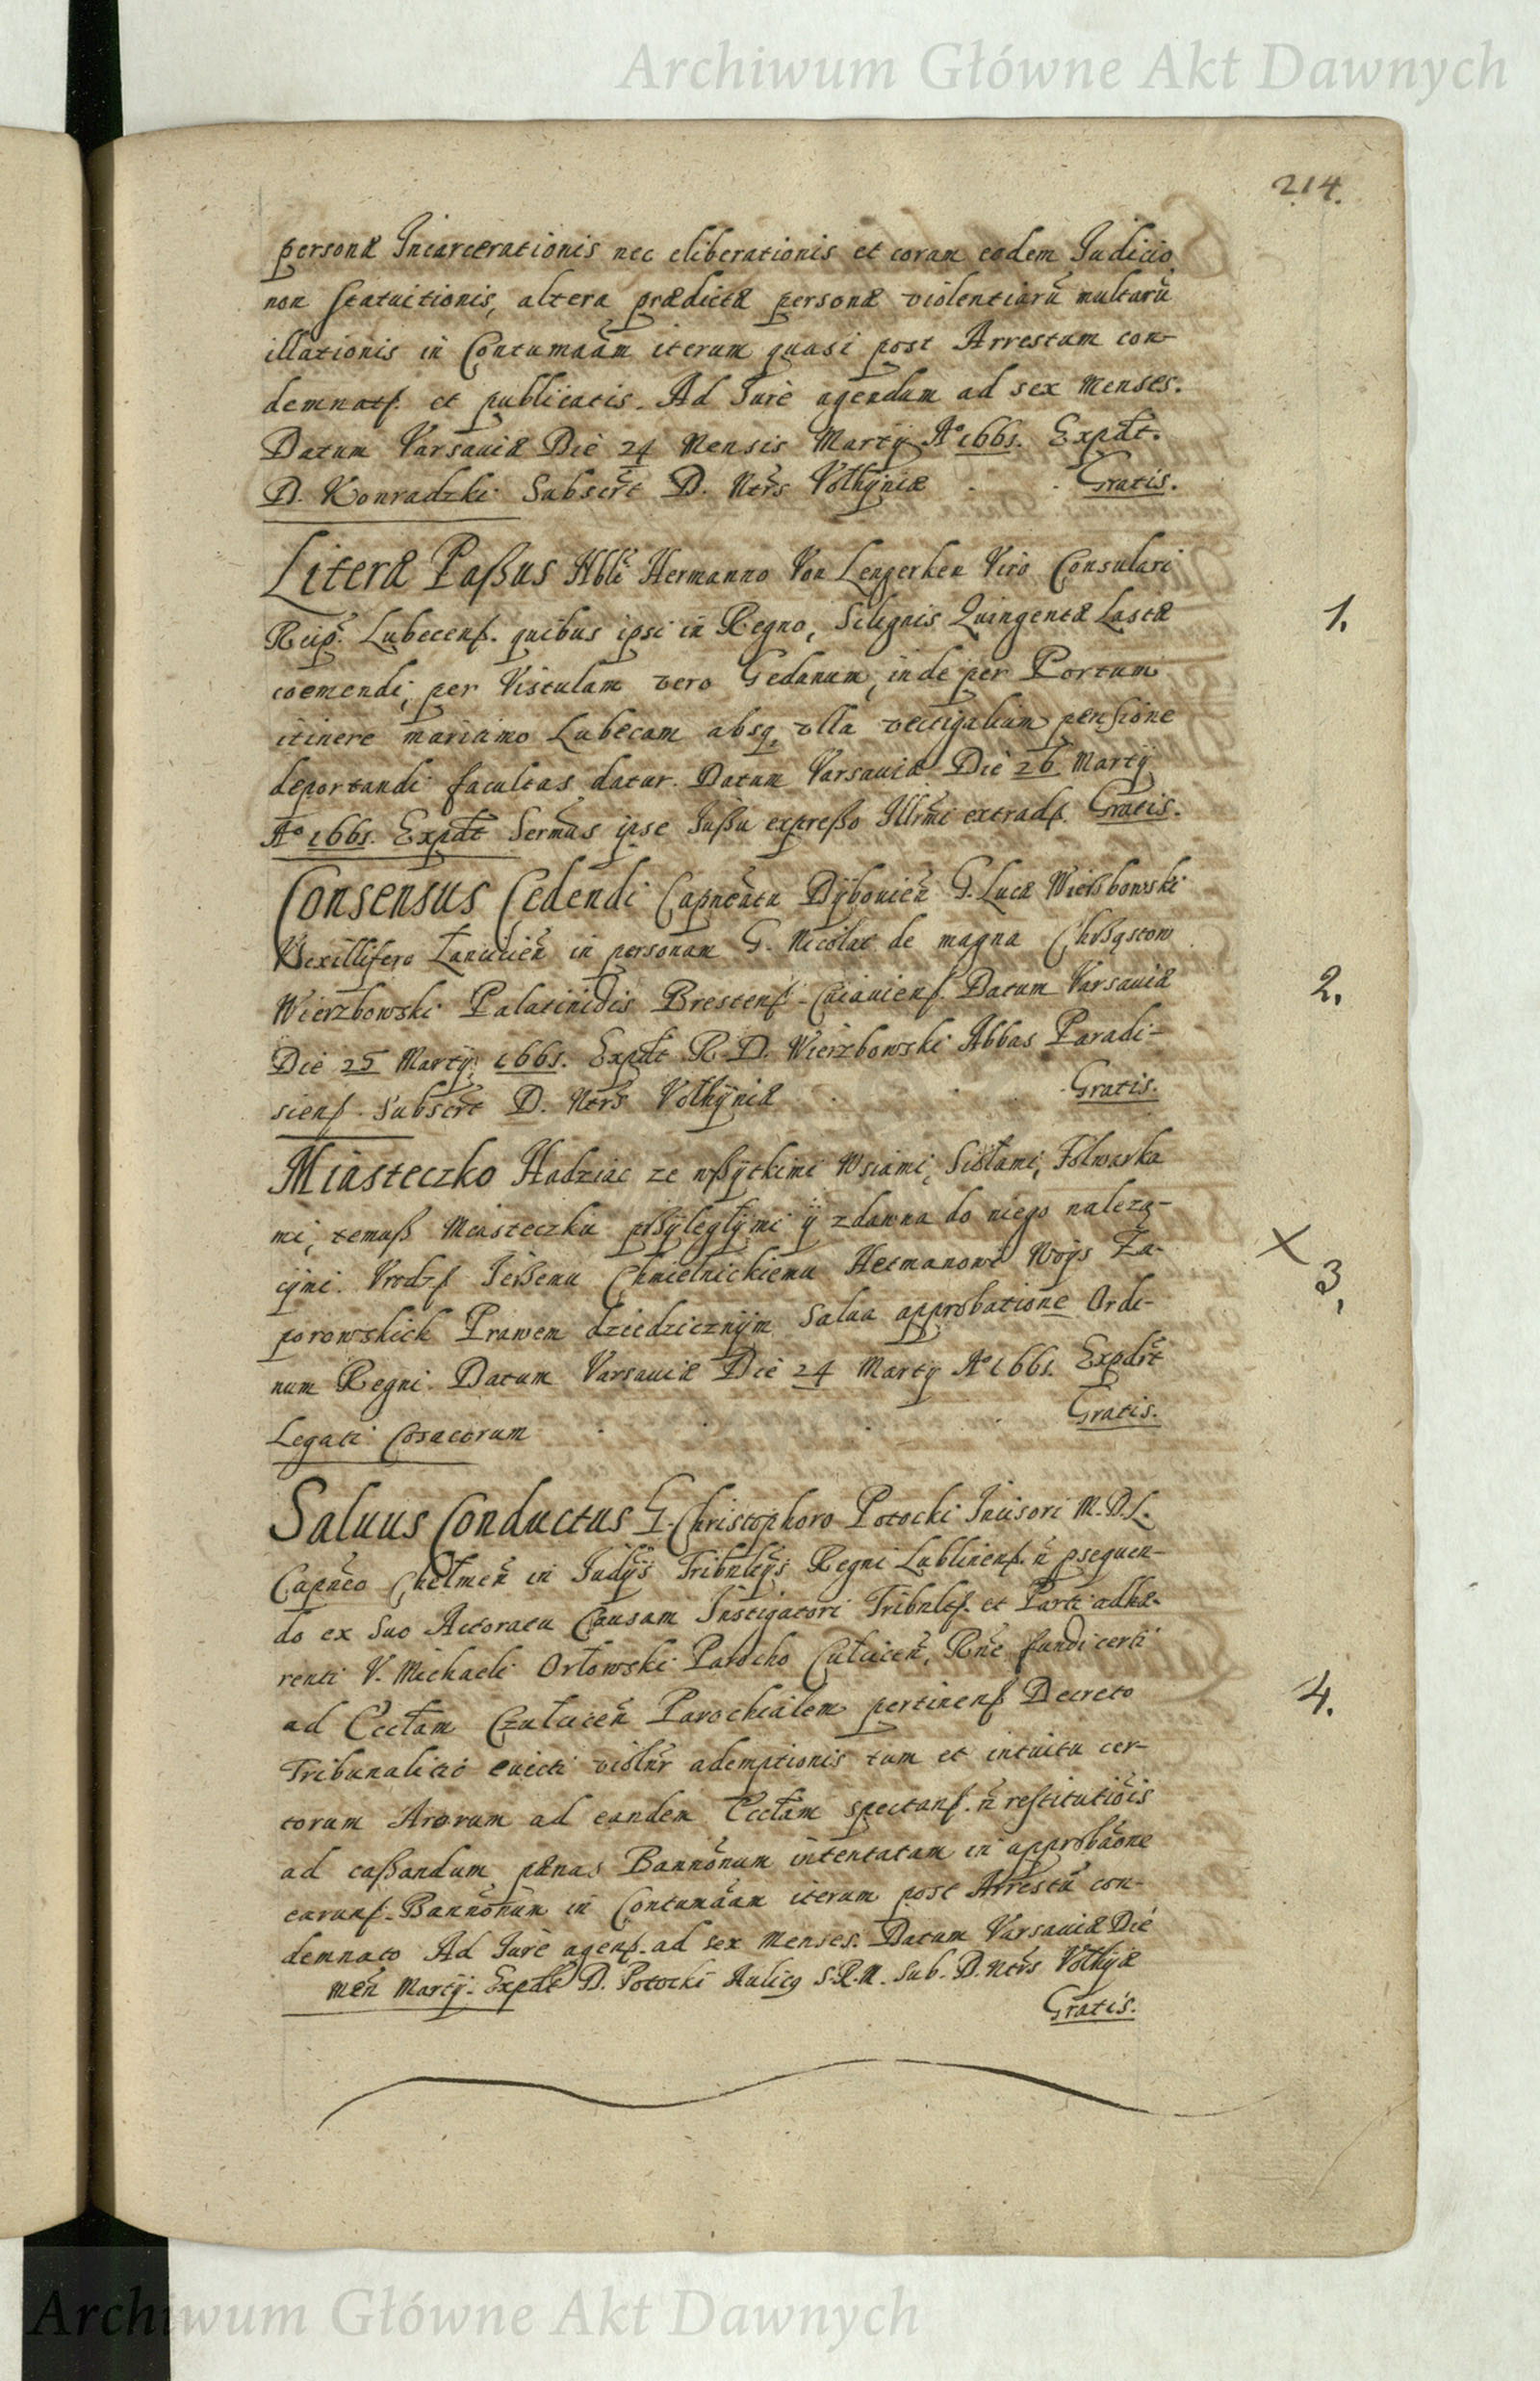 Archiwum Główne Akt Dawnych
214.
personæ Incarcerationis nec eliberationis et coram eodem Iudicio
non statuitionis, altera prædictæ personæ violentiarũ multarũ
illationis in Contumaãm iterum quasi post Arrestum con-
demnatſ. et publicatis. Ad Iure agendum ad sex menses.
Datum Varsaviæ Die 24 Mensis Martÿ Aº 1661. Expdt.
D. Konradzki Subscrt D. Ntrs Volhÿniæ Gratis.
Literæ Paßus Nbli Hermanno Von Lengerken Viro Consulari
Reip. Lubecenſ. quibus ipsi in Regno, Siliginis Quingentæ Lastæ
coemendi, per Vistulam vero Gedanum, inde per Portum
itinere maritimo Lubecam absq, vlla vectigalium pensione
deportandi facultas datur. Datum Varsauiæ Die 26 Martÿ
Aº 1661. Expdt Sermus ipse Iußu expreßo Illrmi extradſ. Gratis.
1.
Consensus Cedendi Capneatu Dÿbouien G. Lucæ Wierzbowski
Vexillifero Łancicien in personam G. Nicolai de magna Chrząstow
Wierzbowski Palatinidis Brestenſ-Cuiauienſ. Datum Varsauiæ
Die 25 Martÿ 1661. Expdt R. D. Wierzbowski Abbas Paradi-
sienſ. Subscrt D. Ntrs Volhÿniæ Gratis.
2.
Miasteczko Hadziac ze wßÿtkimi Wsiami, Siołami, Folwarka
mi, temuß Miasteczku pßÿległÿmi ÿ zdawna do niego należą-
cÿmi. Vrodzſ Ierzemu Chmielnickiemu Hetmanowi Woÿs Za-
porowskich Prawem dziedzicznÿm Salua approbatione Ordi-
num Regni. Datum Varsauiæ Die 24 Martÿ Aº 1661. Expdrt
Legati Cosacorum Gratis.
X 3,
Saluus Conductus G. Christophoro Potocki Incisori M.D.L.
Capneo Chełmen in Iudÿs Tribnlÿs Regni Lublinenſ. ñ psequen-
do ex Suo Actoratu Causam Instigatori Tribnlſ. et Parti adhæ-
renti V. Michaeli Orłowski Parocho Cułcicen, Rñe fundi certi
ad Eccłam Czułcicen Parochialem pertinenſ Decreto
Tribunalitio euicti violnr ademptionis tum et intuitu cer-
torum Arorum ad eandem Eccłam spectanſ. ñ restitutiõis
ad caßandum pænas Bannonum intentatam in approbãone
earunſ. Bannonum in Contumaãm iterum post Arrestũ con-
demnato Ad Iure agenſ. ad sex menses. Datum Varsauiæ Die
men Martÿ. Expdt D. Potocki Aulicꝰ S.R.M. Sub. D. Ntrs Volhÿæ
Gratis.
4.
Archiwum Główne Akt Dawnych